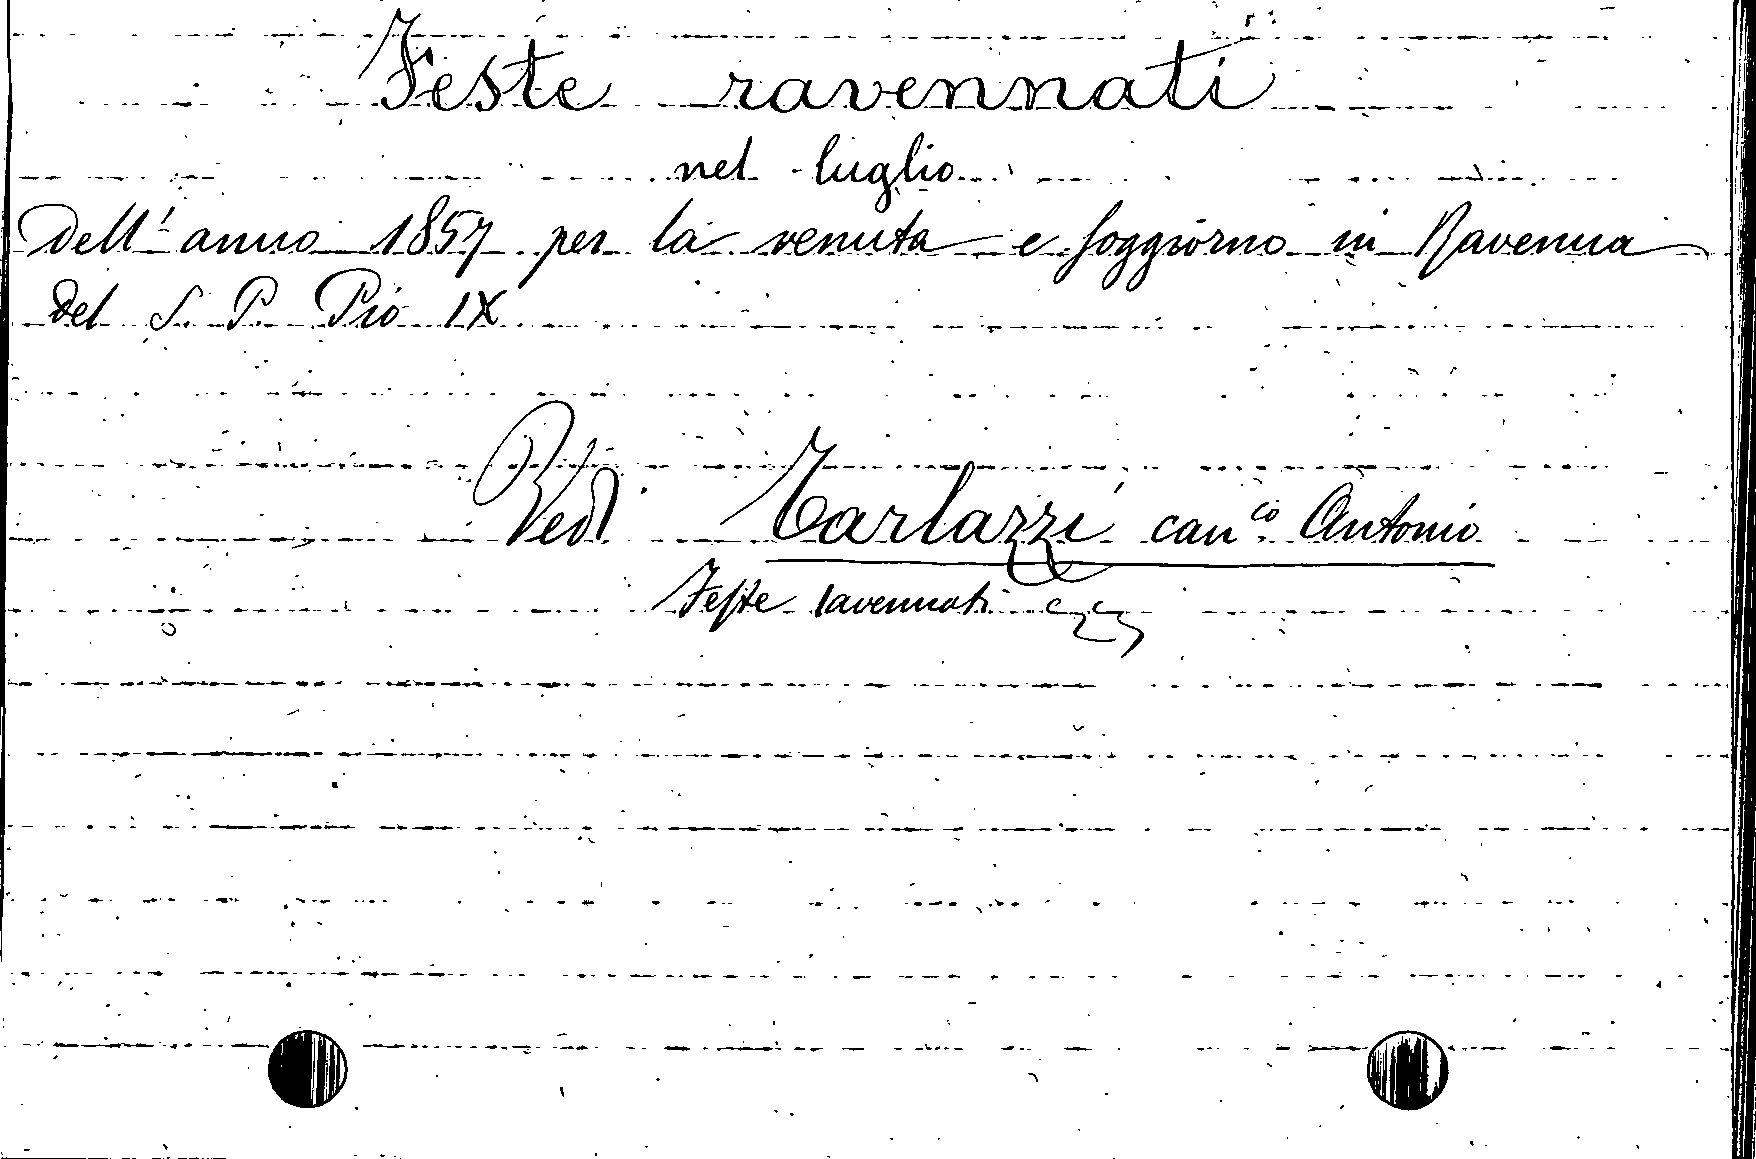 Feste ravennati
nel luglio
dell'anno 1857 per la venuta e soggiorno in Ravenna
del S. P. Pio IX
Vedi Tarlazzi can.co Antonio
Feste ravennati